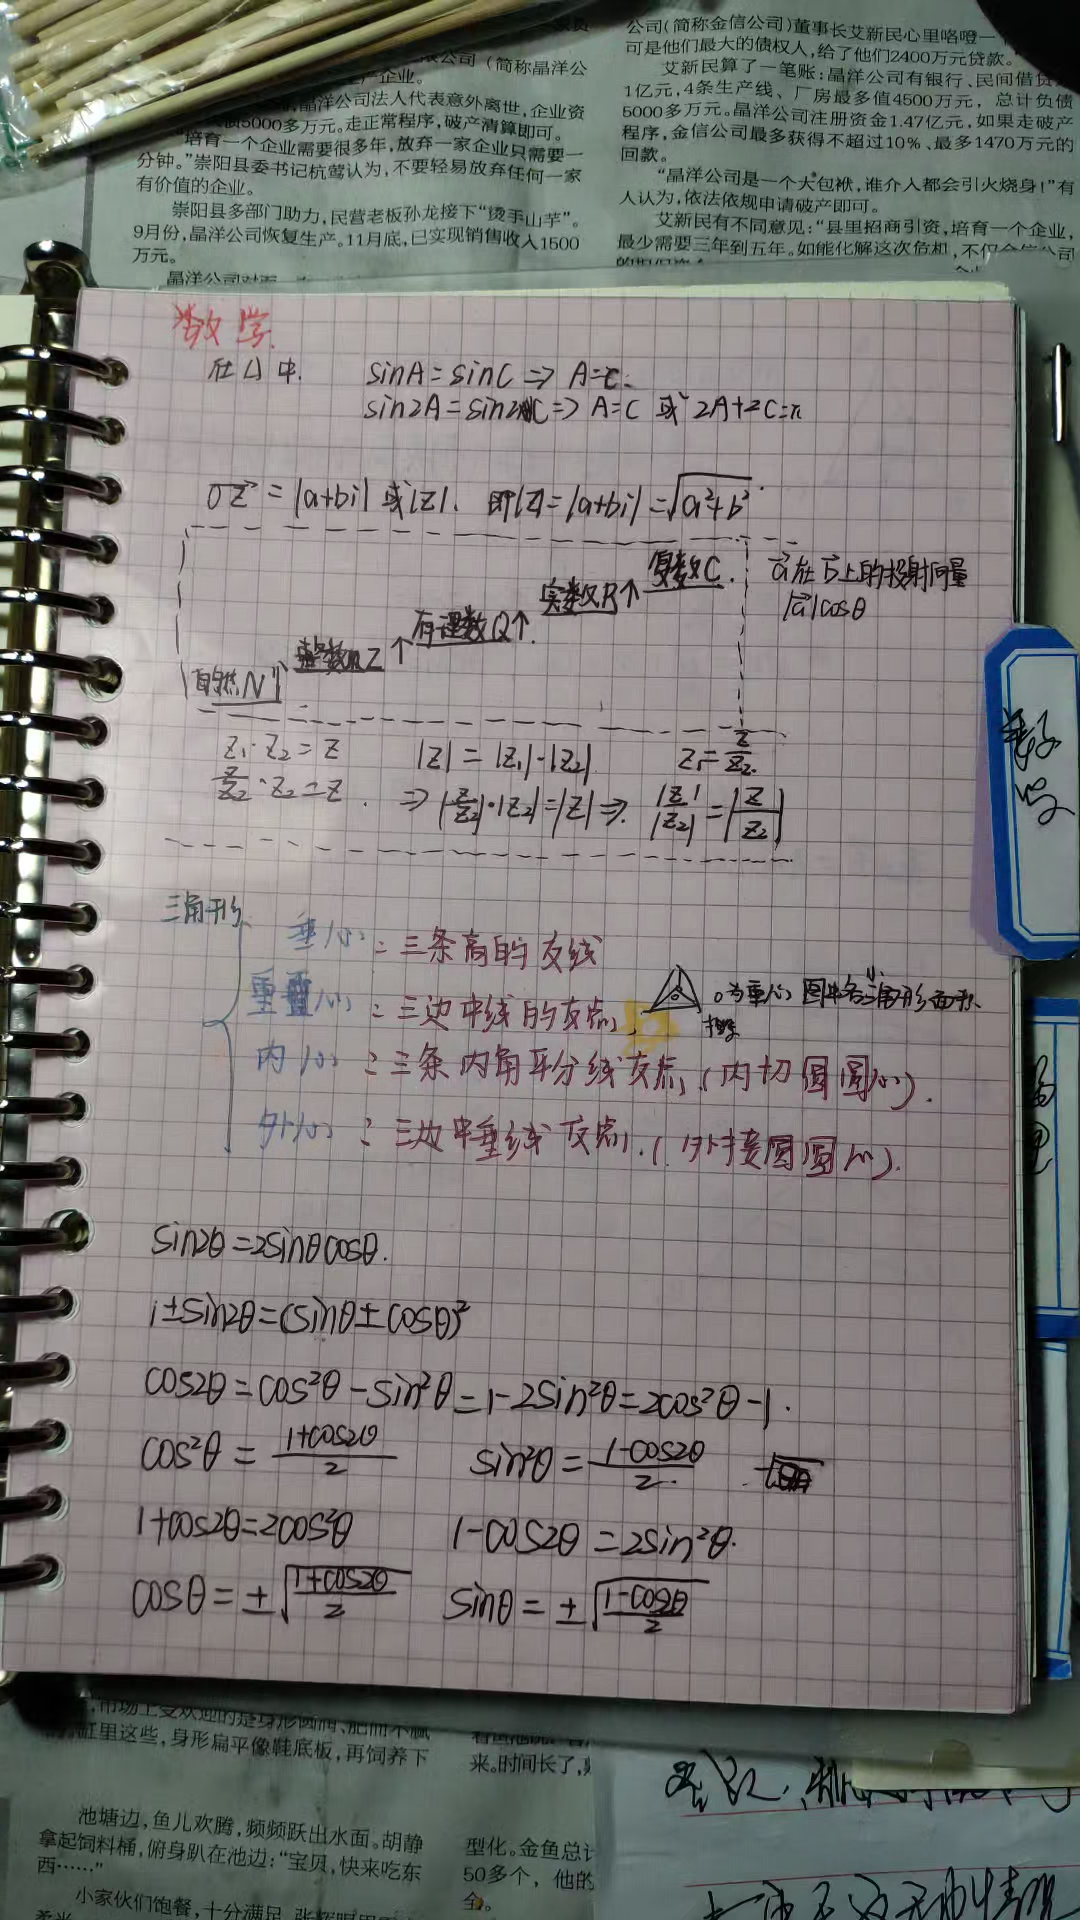 公司（简称晶洋公
产企业。
晶洋公司法人代表意外离世，企业资
5000多万元。走正常程序，破产清算即可。
“培育一个企业需要很多年，放弃一家企业只需要一
分钟。”崇阳县委书记杭莺认为，不要轻易放弃任何一家
有价值的企业。
崇阳县多部门助力，民营老板孙龙接下“烫手山芋”。
9月份，晶洋公司恢复生产。11月底，已实现销售收入1500
万元。
公司（简称金信公司）董事长艾新民心里咯噔一
可是他们最大的债权人，给了他们2400万元贷款。
艾新民算了一笔账：晶洋公司有银行、民间借贷
1亿元，4条生产线、厂房最多值4500万元，总计负债
5000多万元。晶洋公司注册资金1.47亿元，如果走破产
程序，金信公司最多获得不超过10%、最多1470万元的
回款。
“晶洋公司是一个大包袱，谁介入都会引火烧身！”有
人认为，依法依规申请破产即可。
艾新民有不同意见：“县里招商引资，培育一个企业，
最少需要三年到五年。如能化解这次危机，不仅金信公司
数学
在△中. sinA=sinC⇒A=C.
sin2A=sin2C⇒A=C 或 2A+2C=π
OZ = |a+bi| 或|Z|. 即|Z|=|a+bi|=√a²+b²
复数C.
a在b上的投射向量
|a|cosθ
实数R↑
有理数Q↑.
整数Z↑
自然N↑
Z₁·Z₂=Z |Z|=|Z₁|·|Z₂| Z₁=Z/Z₂.
Z/Z₂·Z₂=Z. ⇒|Z/Z₂|·|Z₂|=|Z|⇒. |Z|/|Z₂|=|Z/Z₂|
三角形
垂心：三条高的交线
重心：三边中线的交点,
O为重心 图中各三角形面积
相等
内心：三条内角平分线交点,(内切圆圆心).
外心：三边中垂线交点.(外接圆圆心).
sin2θ=2sinθcosθ.
1±sin2θ=(sinθ±cosθ)²
cos2θ=cos²θ-sin²θ=1-2sin²θ=2cos²θ-1.
cos²θ=(1+cos2θ)/2 sin²θ=(1-cos2θ)/2.
1+cos2θ=2cos²θ 1-cos2θ=2sin²θ.
cosθ=±√(1+cos2θ)/2 sinθ=±√(1-cos2θ)/2
数
学
理
缸里这些，身形扁平像鞋底板，再饲养下
池塘边，鱼儿欢腾，频频跃出水面。胡静
拿起饲料桶，俯身趴在池边：“宝贝，快来吃东
西……”
小家伙们饱餐，十分满足
来。时间长了，
型化。金鱼总计
50多个，他的
全。